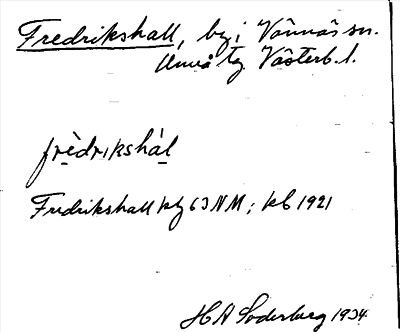 Fredrikshall, by i Vännäs sn.
Umeå tg Västerb. l.
frèdrikshál
Fredrikshall 63 NM; kb 1921
H A Söderberg 1934